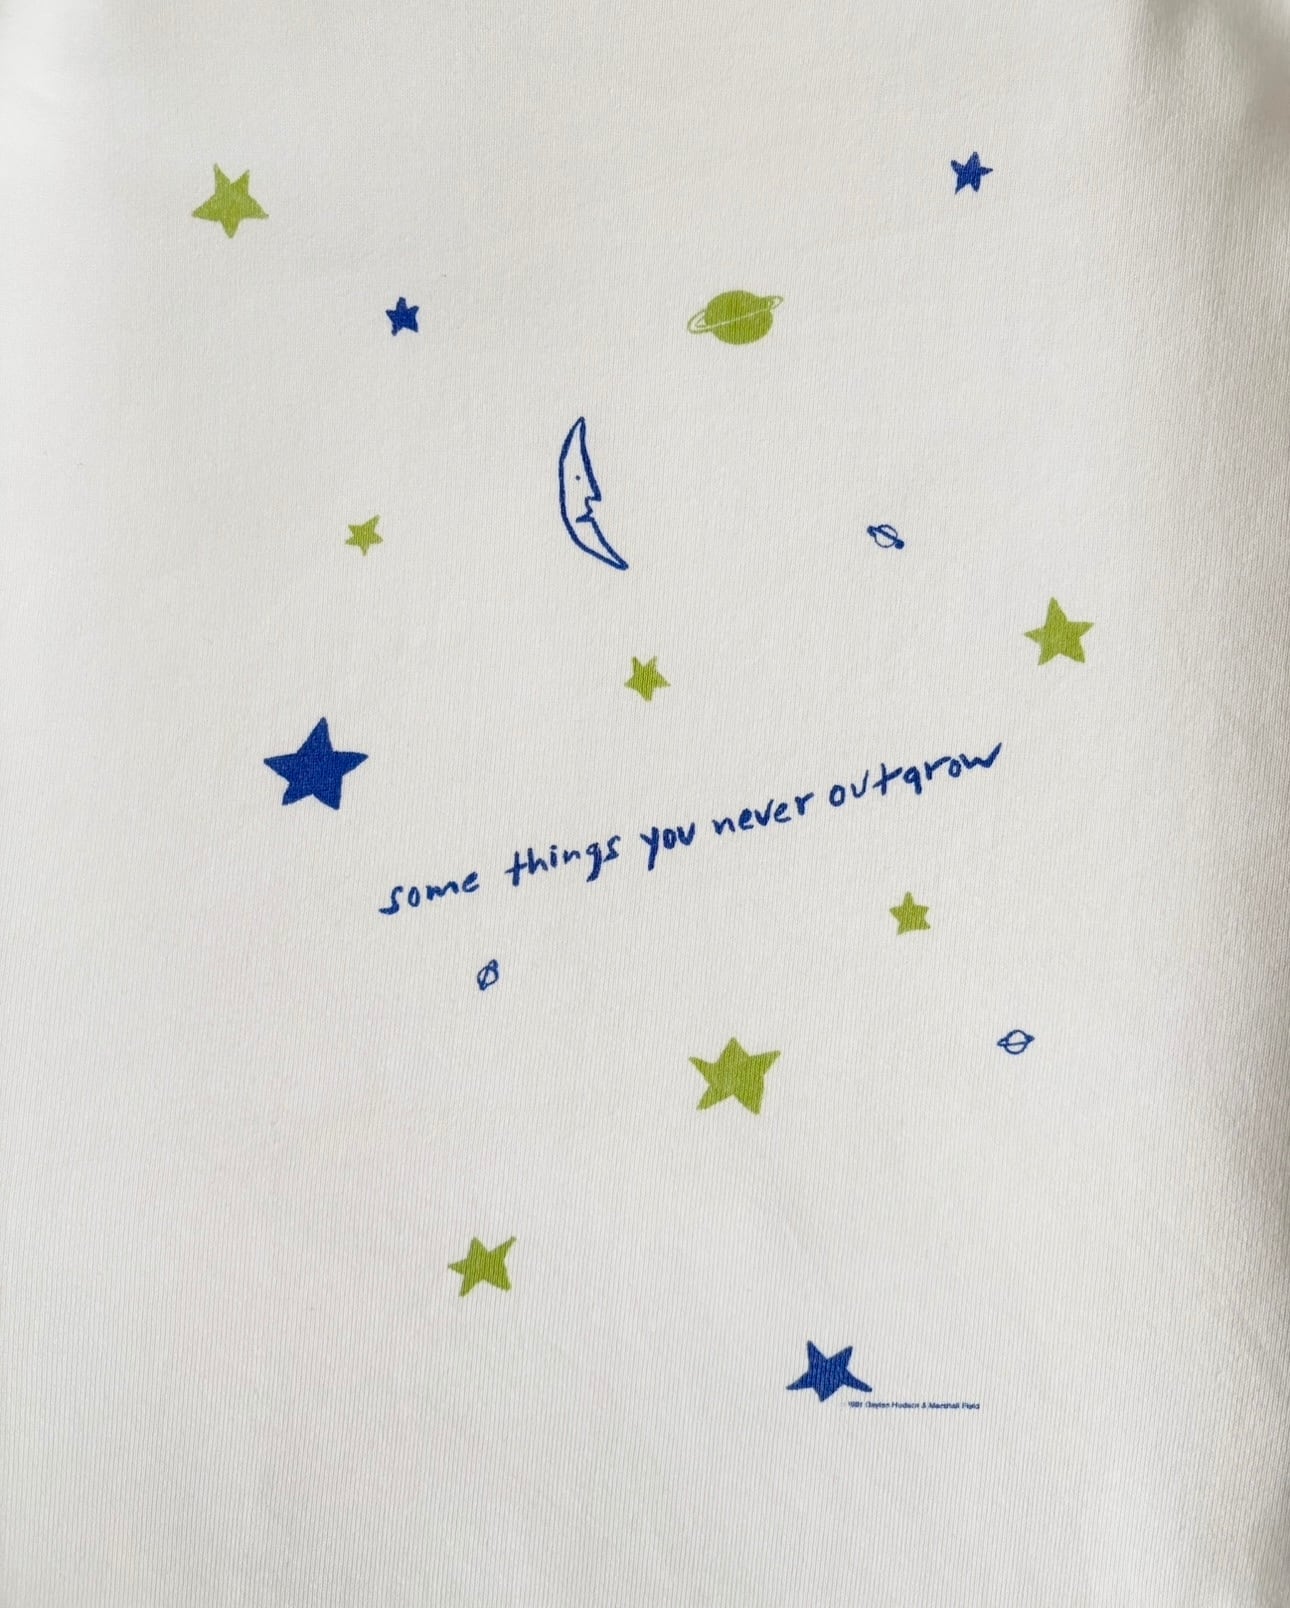 some things you never outgrow
1991 Dayton Hudson & Marshall Field